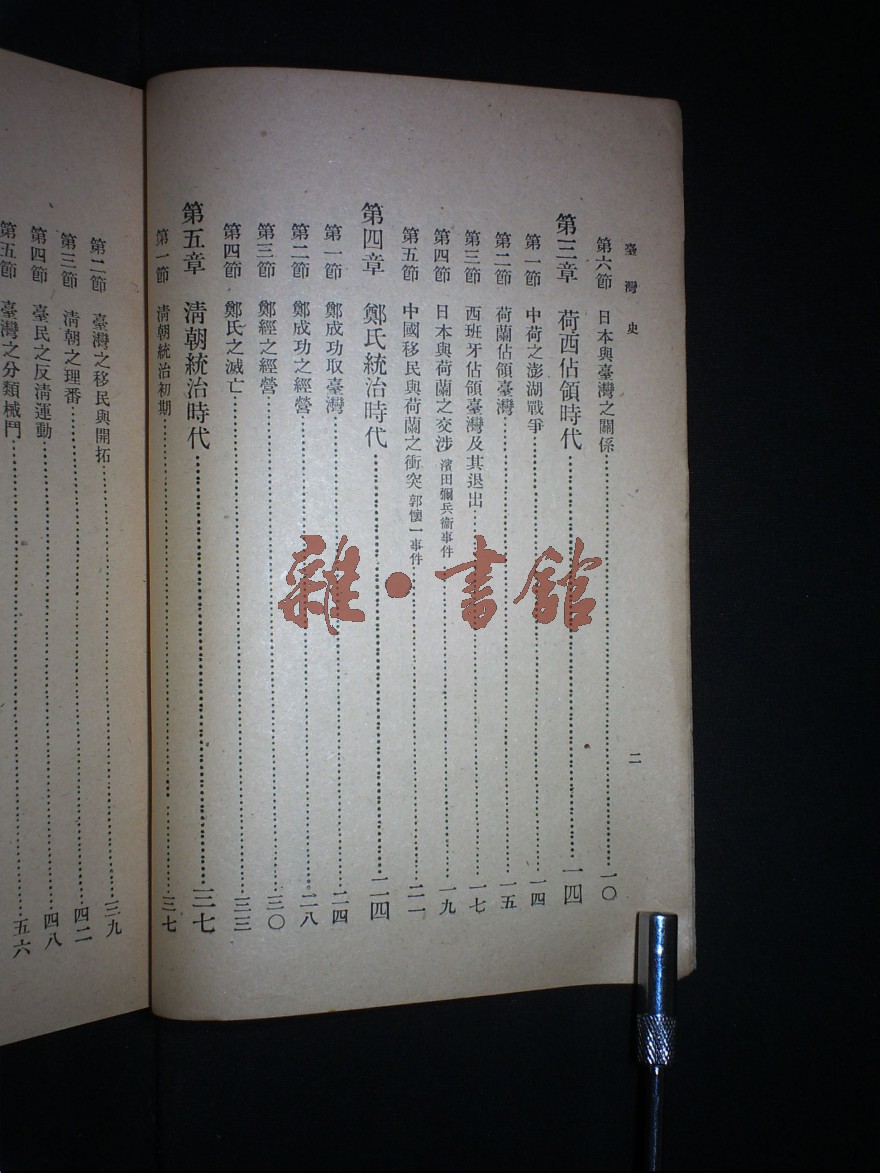 臺灣史
二
第六節 日本與臺灣之關係……一〇
第三章 荷西佔領時代……一四
第一節 中荷之澎湖戰爭……一四
第二節 荷蘭佔領臺灣……一五
第三節 西班牙佔領臺灣及其退出……一七
第四節 日本與荷蘭之交涉 濱田彌兵衞事件……一九
第五節 中國移民與荷蘭之衝突 郭懷一事件……二一
第四章 鄭氏統治時代……二四
第一節 鄭成功取臺灣……二四
第二節 鄭成功之經營……二八
第三節 鄭經之經營……三〇
第四節 鄭氏之滅亡……三三
第五章 清朝統治時代……三七
第一節 清朝統治初期……三七
第二節 臺灣之移民與開拓……三九
第三節 清朝之理番……四二
第四節 臺民之反清運動……四八
第五節 臺灣之分類械鬥……五六
雜·書館